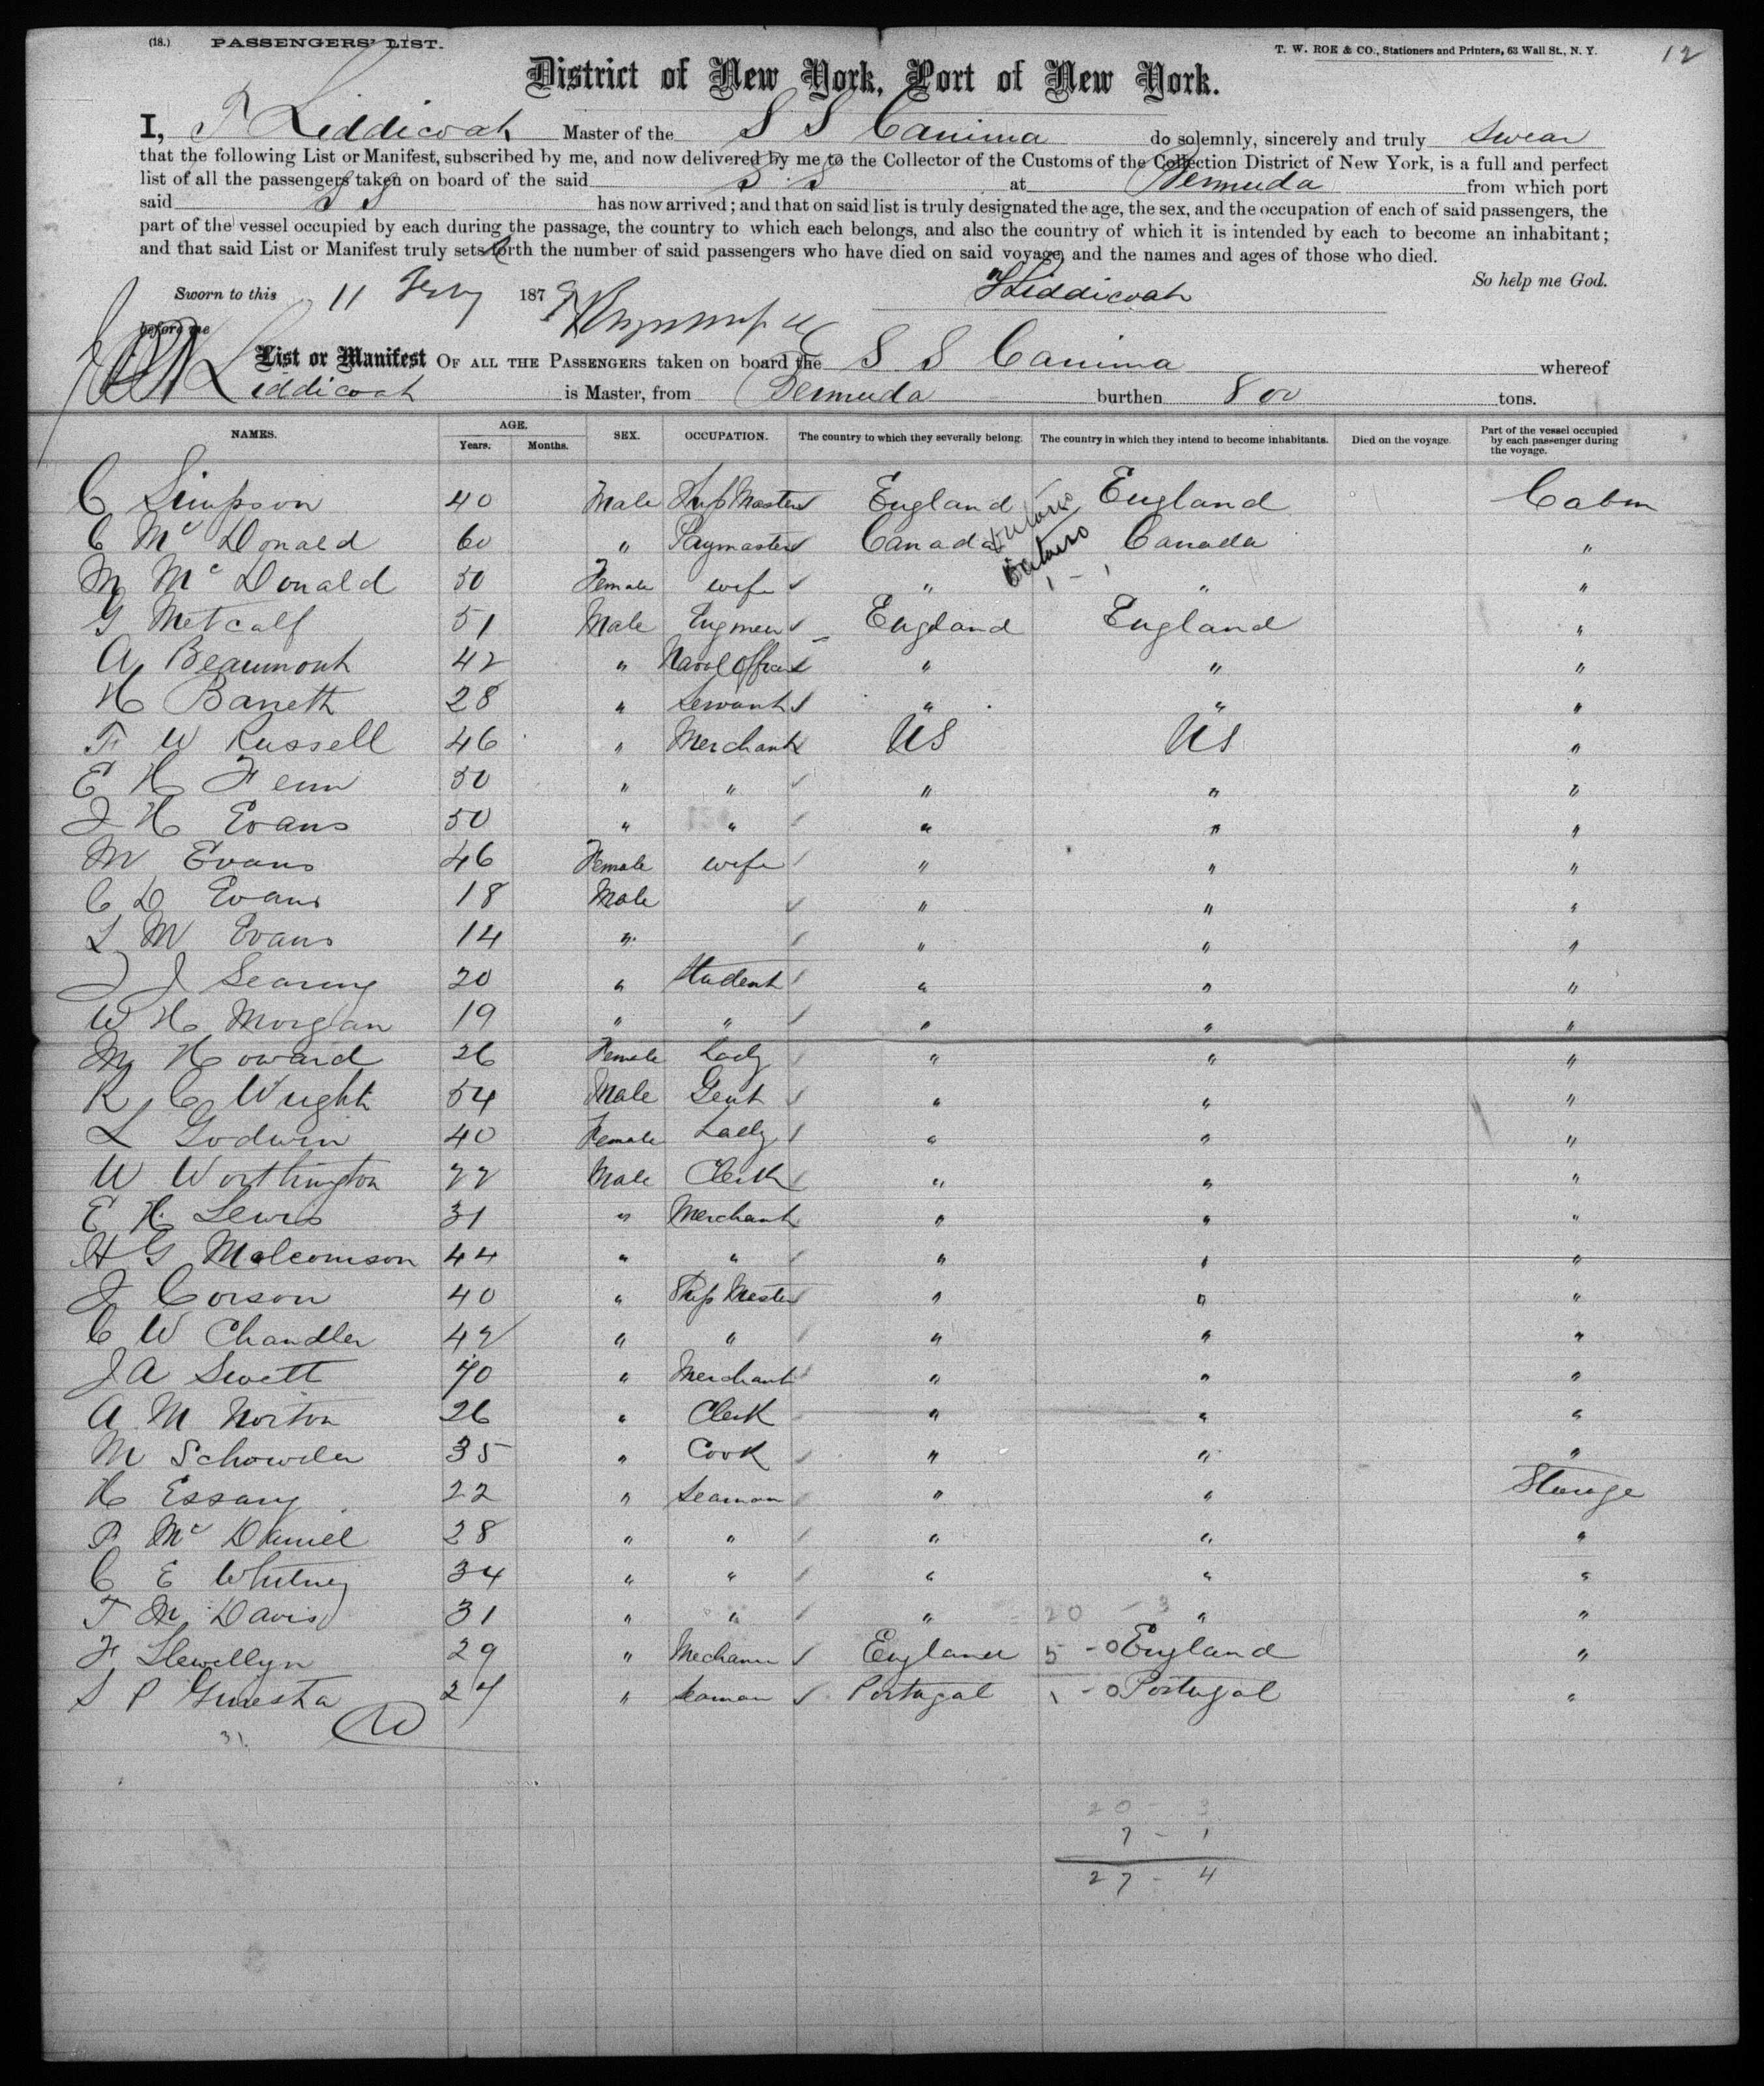 (18.) PASSENGERS' LIST. T. W. ROE & CO., Stationers and Printers, 63 Wall St., N. Y. 12
District of New York, Port of New York.
I, Liddicoat Master of the S S Canima do solemnly, sincerely and truly swear
that the following List or Manifest, subscribed by me, and now delivered by me to the Collector of the Customs of the Collection District of New York, is a full and perfect
list of all the passengers taken on board of the said S S at Bermuda from which port
said S S has now arrived; and that on said list is truly designated the age, the sex, and the occupation of each of said passengers, the
part of the vessel occupied by each during the passage, the country to which each belongs, and also the country of which it is intended by each to become an inhabitant;
and that said List or Manifest truly sets forth the number of said passengers who have died on said voyage, and the names and ages of those who died.
So help me God.
Sworn to this 11 Feby 1879 Liddicoat
before me
List or Manifest OF ALL THE PASSENGERS taken on board the S S Canima whereof
Liddicoat is Master, from Bermuda burthen 800 tons.
NAMES. AGE. Years. Months. SEX. OCCUPATION. The country to which they severally belong. The country in which they intend to become inhabitants. Died on the voyage. Part of the vessel occupied by each passenger during the voyage.
C Simpson 40 Male Ship Master England England Cabin
C Mc Donald 60 " Paymaster Canada Ontario Canada "
M Mc Donald 50 Female wife " " "
G Metcalf 51 Male England England "
A Beaumont 42 " Naval Officer " " "
H Barrett 28 " Servant " " "
F W Russell 46 " Merchant US US "
E H Fenn 50 " " " " "
J H Evans 50 " " " " "
M Evans 46 Female wife " " "
C D Evans 18 Male " " "
L M Evans 14 " " " "
J J Searing 20 " Student " " "
W H Morgan 19 " " " " "
M Howard 26 Female Lady " " "
R C Wright 54 Male Gent " " "
L Godwin 40 Female Lady " " "
W Worthington 22 Male Clerk " " "
E H Lewis 31 " Merchant " " "
H G Malcomson 44 " " " " "
J Corson 40 " Ship Master " " "
C W Chandler 42 " " " " "
J A Swett 40 " Merchant " " "
A M Norton 26 " Clerk " " "
M Schowder 35 " Cook " " "
H Essany 22 " Seaman " " Sterage
P Mc Daniel 28 " " " " "
C E Whitney 34 " " " " "
T M Davis 31 " " " 20 - 3 " "
F Llewellyn 29 " Mechanic England 5 - 0 England "
S P Guiesta 24 " Seaman Portugal 1 - 0 Portugal "
31
20 - 3
7 - 1
27 - 4